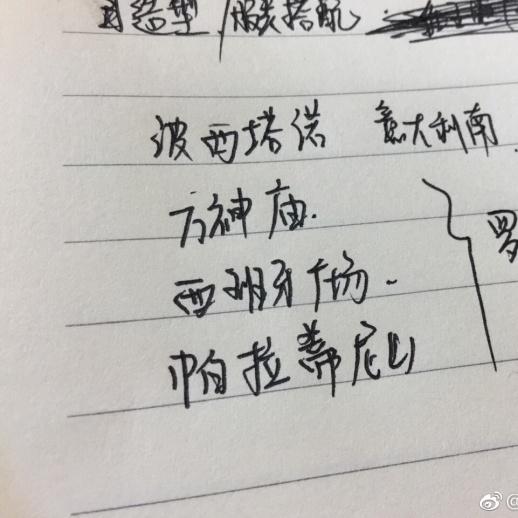 造型/服装搭配
波西塔诺 意大利南
万神庙.
西班牙广场.
帕拉蒂尼山
罗